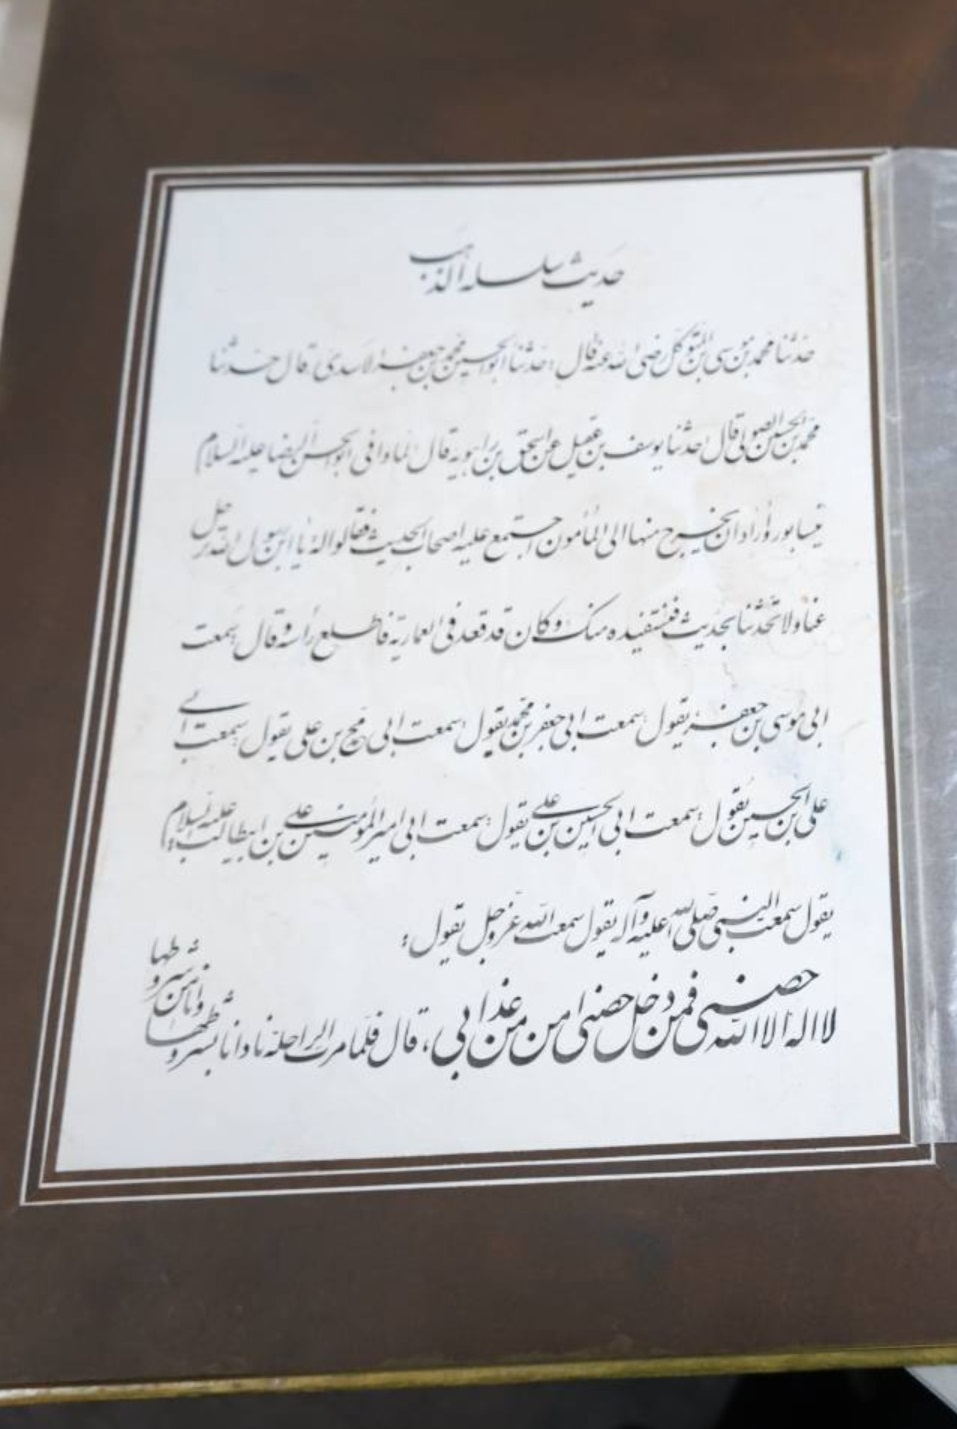 حدیث سلسله الذهب
حدثنا محمد بن موسی بن المتوکل رضی الله عنه قال: حدثنا ابوالحسین محمد بن جعفر الاسدی قال حدثنا
محمد بن الحسین الصولی قال حدثنا یوسف بن عقیل عن اسحق بن راهویه قال لما وافی ابوالحسن الرضا علیه السلام
نیسابور و أراد ان یخرج منها الی المأمون اجتمع علیه اصحاب الحدیث فقالوا له یا ابن رسول الله ترحل
عنا ولا تحدثنا بحدیث فنستفیده منک و کان قد قعد فی العماریة فاطلع رأسه و قال سمعت
ابی موسی بن جعفر یقول سمعت ابی جعفر بن محمد یقول سمعت ابی محمد بن علی یقول سمعت ابی
علی بن الحسین یقول سمعت ابی الحسین بن علی یقول سمعت ابی امیر المؤمنین علی بن ابیطالب علیه السلام
یقول سمعت النبی صلی الله علیه و آله یقول سمعت الله عزوجل یقول:
لا اله الا الله حصنی فمن دخل حصنی امن من عذابی، قال فلما مرت الراحلة نادانا بشروطها وانا من شروطها